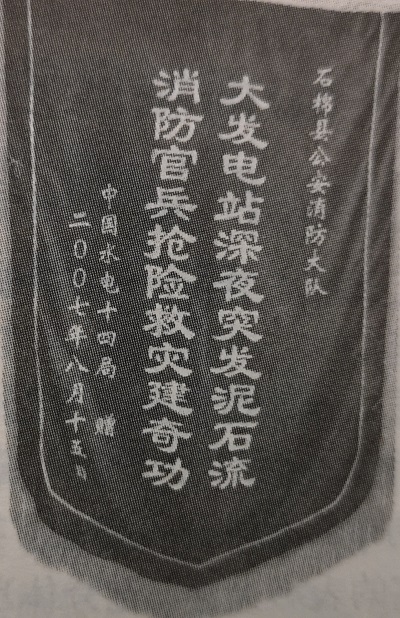 石棉县公安消防大队
大发电站深夜突发泥石流
消防官兵抢险救灾建奇功
中国水电十四局 赠
二〇〇七年八月十五日